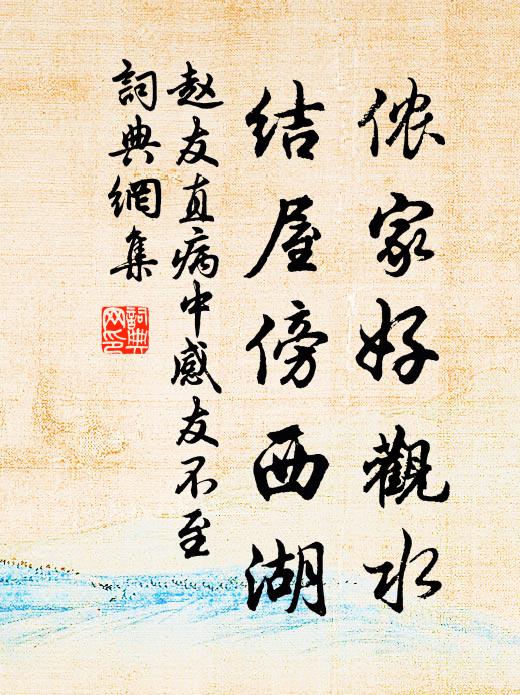 侬家好觀水
结屋傍西湖
赵友直病中感友不至
詞典網集
詞典网印